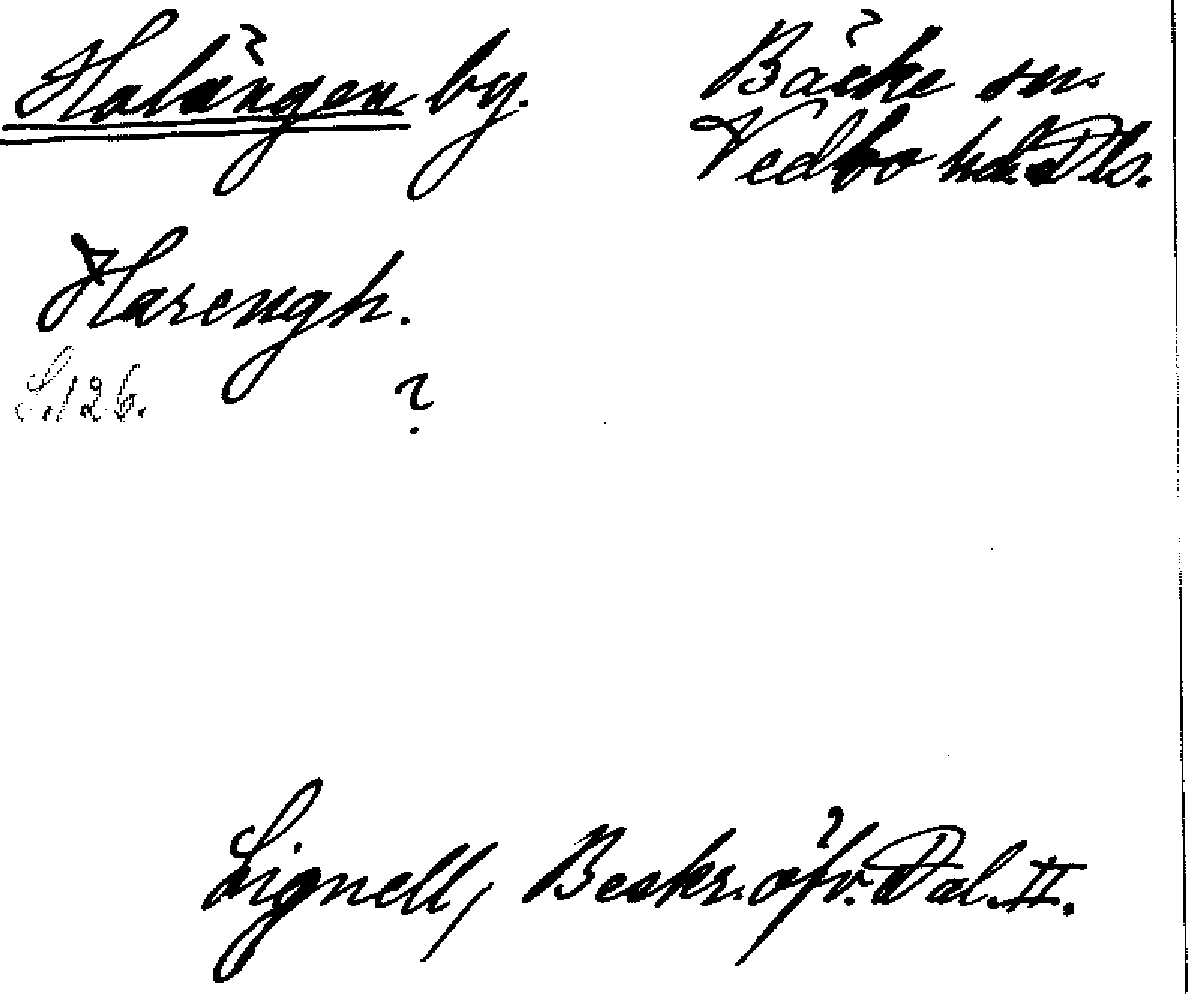 Halängen by.
Bäcke sn.
Vedbo hd. Dls.
Harengh.
S. 126. ?
Lignell, Beskr. öfv. Dal. II.